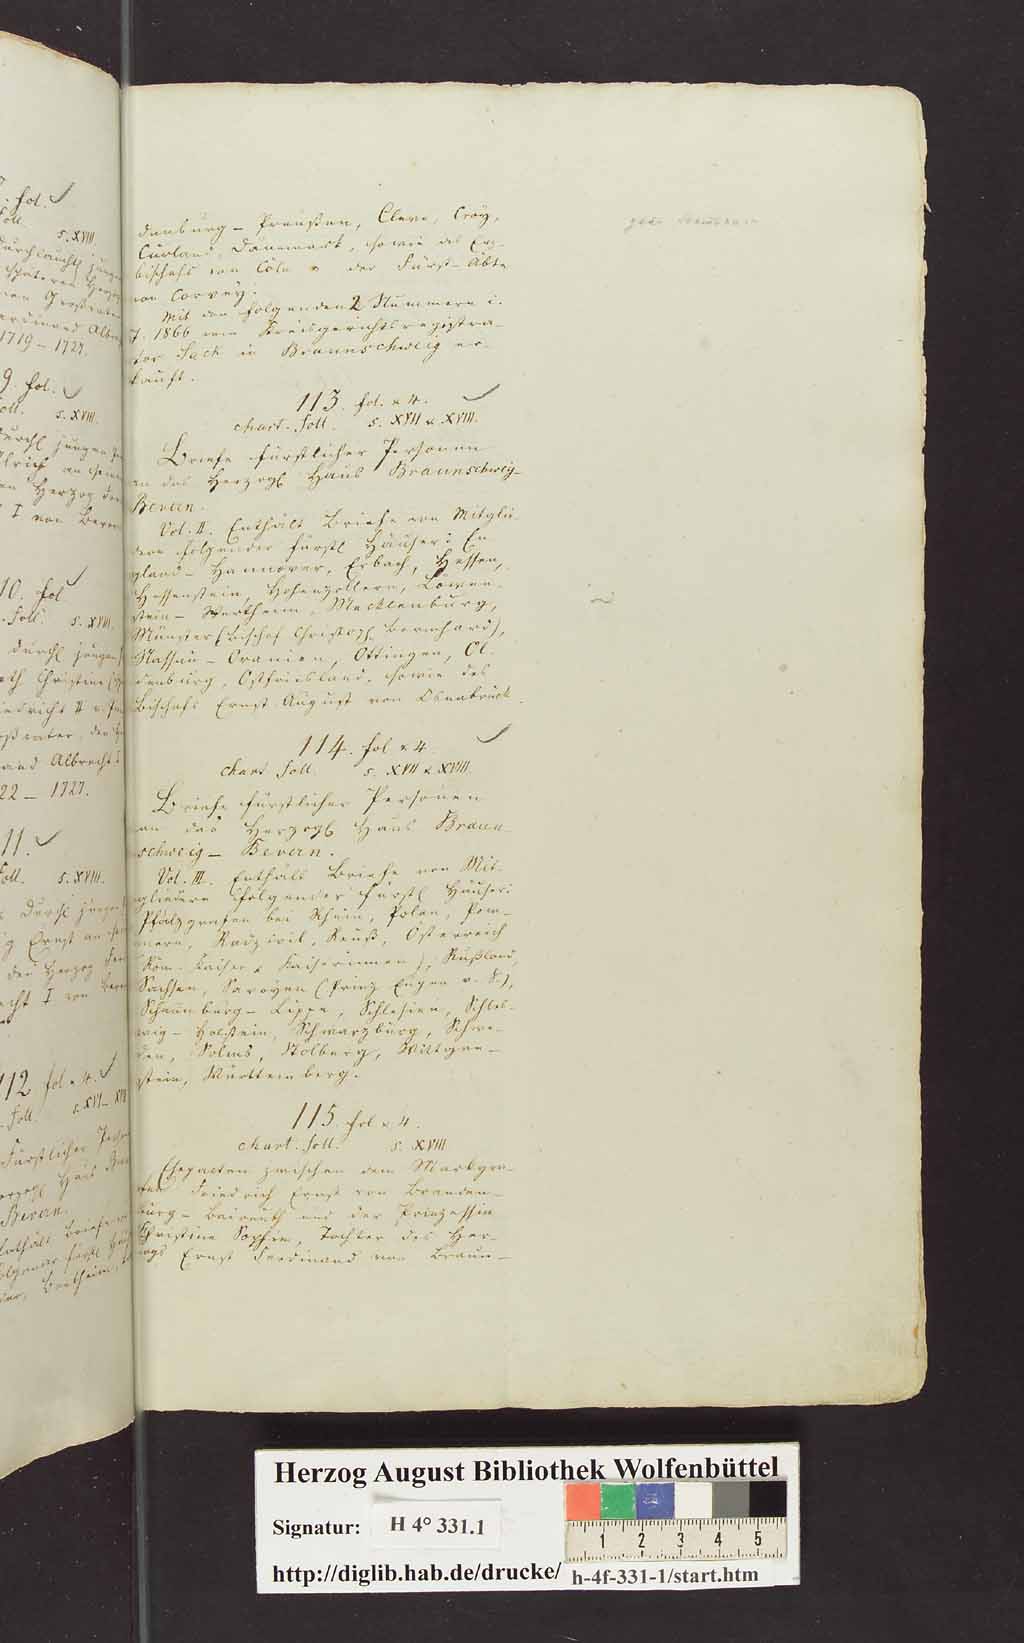 7. fol. ✓
foll. s. XVIII.
durchlaucht jungen
späteren Herzog
1719 – 1727.
9. fol. ✓
foll. s. XVIII.
en Herzog
I von Bevern
10. fol ✓
foll. s. XVIII.
durchl jungen
Christine
22 – 1727.
11. ✓
foll. s. XVIII.
Ernst an
der Herzog
I von Bevern
112 fol u 4. ✓
foll. s. XVI – XVII
Fürstlicher
Haus
Bevern.
Enthält Briefe
folgender fürstl
Bentheim,
denburg – Preußen, Cleve, Croÿ,
Curland, Dänemark, sowie des Erz-
bischofs von Cöln u der Fürst-Äbte
von Corvey.
Mit den folgenden 2 Nummern i.
J. 1866 vom Kreisgerichtsregistra-
tor Sack in Braunschweig er-
kauft.
113. fol. u 4. ✓
chart. foll. s. XVII u XVIII.
Briefe fürstlicher Personen
an das Herzogl Haus Braunschweig-
Bevern.
Vol. II. Enthält Briefe von Mitglie-
dern folgender fürstl Häuser: En-
gland – Hannover, Erbach, Hessen,
Hessenstein, Hohenzollern, Löwen-
stein – Wertheim, Mecklenburg,
Münster (Bischof Christoph Bernhard),
Nassau – Oranien, Öttingen, Ol-
denburg, Ostfriesland, sowie des
Bischofs Ernst August von Osnabrück.
114. fol u 4. ✓
chart foll. s. XVII u XVIII.
Briefe fürstlicher Personen
an das Herzogl Haus Braun-
schweig – Bevern.
Vol. III. Enthält Briefe von Mit-
gliedern folgender fürstl Häuser:
Pfalzgrafen bei Rhein, Polen, Pom-
mern, Radzivil, Reuß, Österreich
(Röm. Kaiser u Kaiserinnen), Rußland,
Sachsen, Savoyen (Prinz Eugen v. S.),
Schaumburg – Lippe, Schlesien, Schles-
wig – Holstein, Schwarzburg, Schwe-
den, Solms, Stolberg, Wittgen-
stein, Württemberg.
115. fol u 4.
chart. foll. s. XVIII
Ehepacten zwischen dem Markgra-
fen Friedrich Ernst von Branden-
burg – Baireuth und der Prinzessin
Christine Sophie, Tochter des Her-
zogs Ernst Ferdinand von Braun-
Herzog August Bibliothek Wolfenbüttel
Signatur: H 4° 331.1
1 2 3 4 5
http://diglib.hab.de/drucke/ h-4f-331-1/start.htm